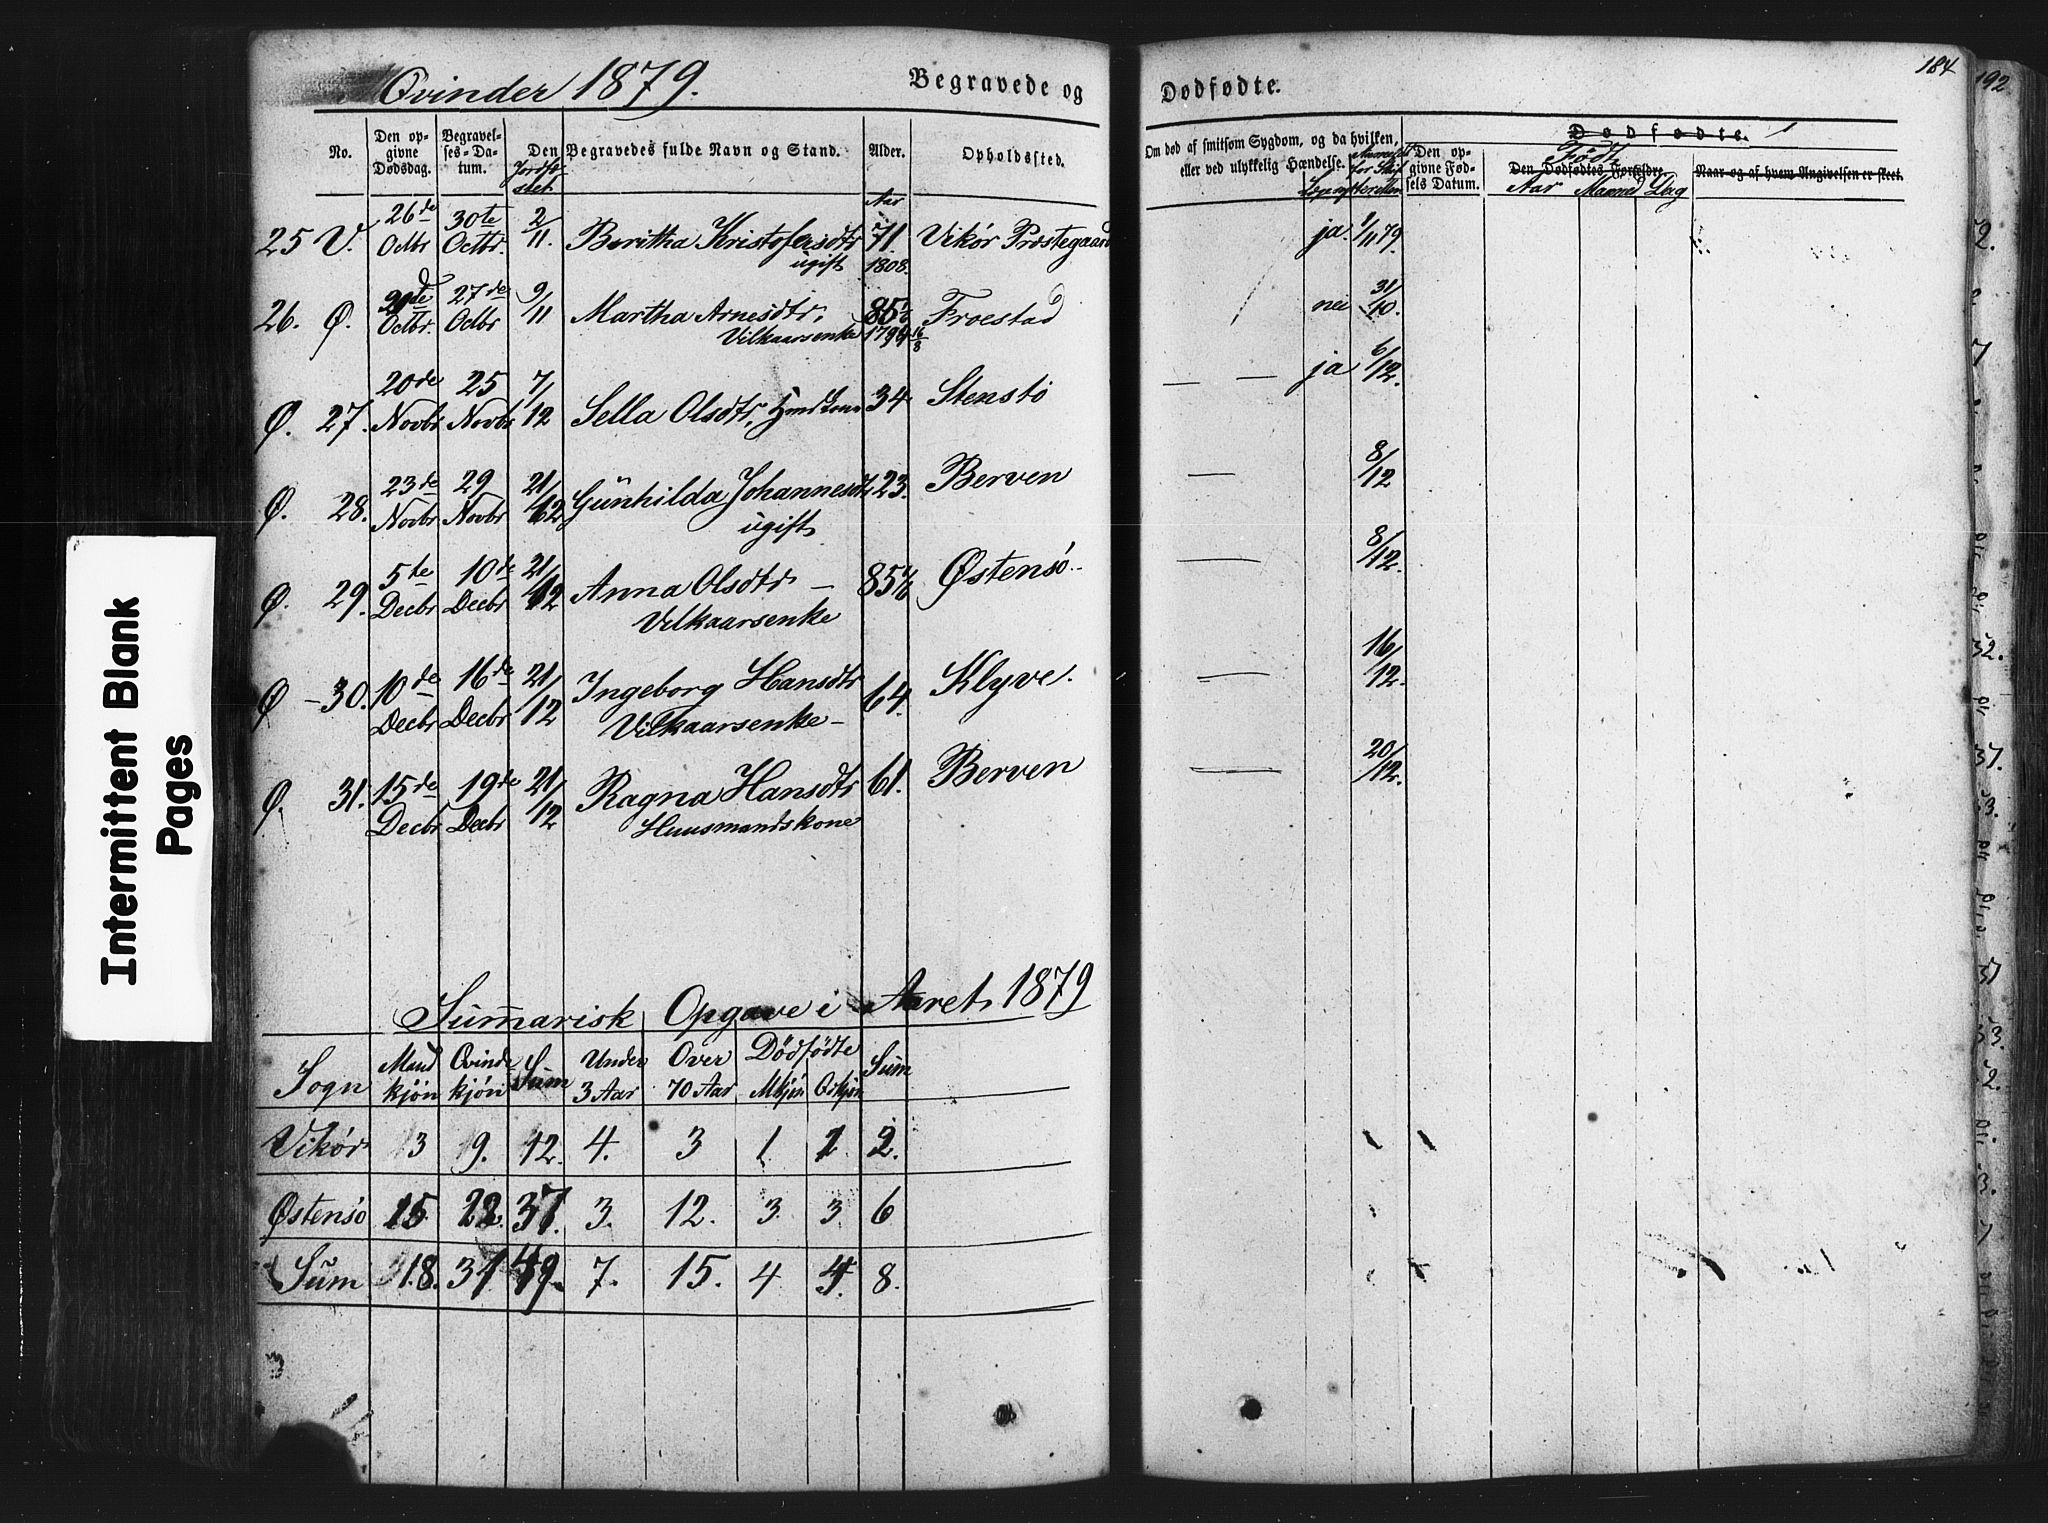 184
192
Qvinder 1879. Begravede og Dødfødte.
No. Den opgivne Dødsdag. Begravelses-Datum. Den Jordfæstet Begravedes fulde Navn og Stand. Alder. Opholdssted. Om død af smitsom Sygdom, og da hvilken, eller ved ulykkelig Hændelse. Anmeldt for Skifteretten Den opgivne Fødsels Datum. Dødfødte. Født Den Dødfødtes Forældre. Aar Maaned Dag Naar og af hvem Angivelsen er skeet.
Aar
25 V. 26de Octbr 30te Octbr. 2/11. Beritha Kristofersdtr 71 Vikør Præstegaard ja. 1/11 79
ugift 1808.
26. Ø. 20de Octbr. 27de Octbr 9/11 Martha Arnesdtr. 85 Froestad nei 31/10.
Vilkaarsenke 1794 16/8
Ø. 27. 20de Novbr 25 Novbr 7/12 Sella Olsdtr, 34 Stenstø — — ja 6/12.
Ø. 28. 23de Novbr 29 Novbr 21/12 Gunhilda Johannesdtr 23. Berven — 8/12
ugift
Ø. 29. 5te Decbr 10de Decbr 21/12 Anna Olsdtr — 85½ Østensø — 8/12.
Vilkaarsenke
Ø — 30. 10de Decbr 16de Decbr 21/12 Ingeborg Hansdtr 64. Klyve. — 16/12.
Vilkaarsenke —
Ø. 31. 15de Decbr 19de Decbr 21/12 Ragna Hansdtr 61. Berven — 20/12.
Huusmandskone
Intermittent Blank
Pages
Summarisk Opgave i Aaret 1879
Sogn Mandkjøn Qvindekjøn Sum Under 3 Aar Over 70 Aar Dødfødte Mkjøn Qvkjøn Sum
Vikør 3 9. 12. 4. 3 1. 1. 2.
Østensø 15 22. 37. 3. 12. 3. 3 6
Sum 18. 31 49. 7. 15. 4 4. 8.